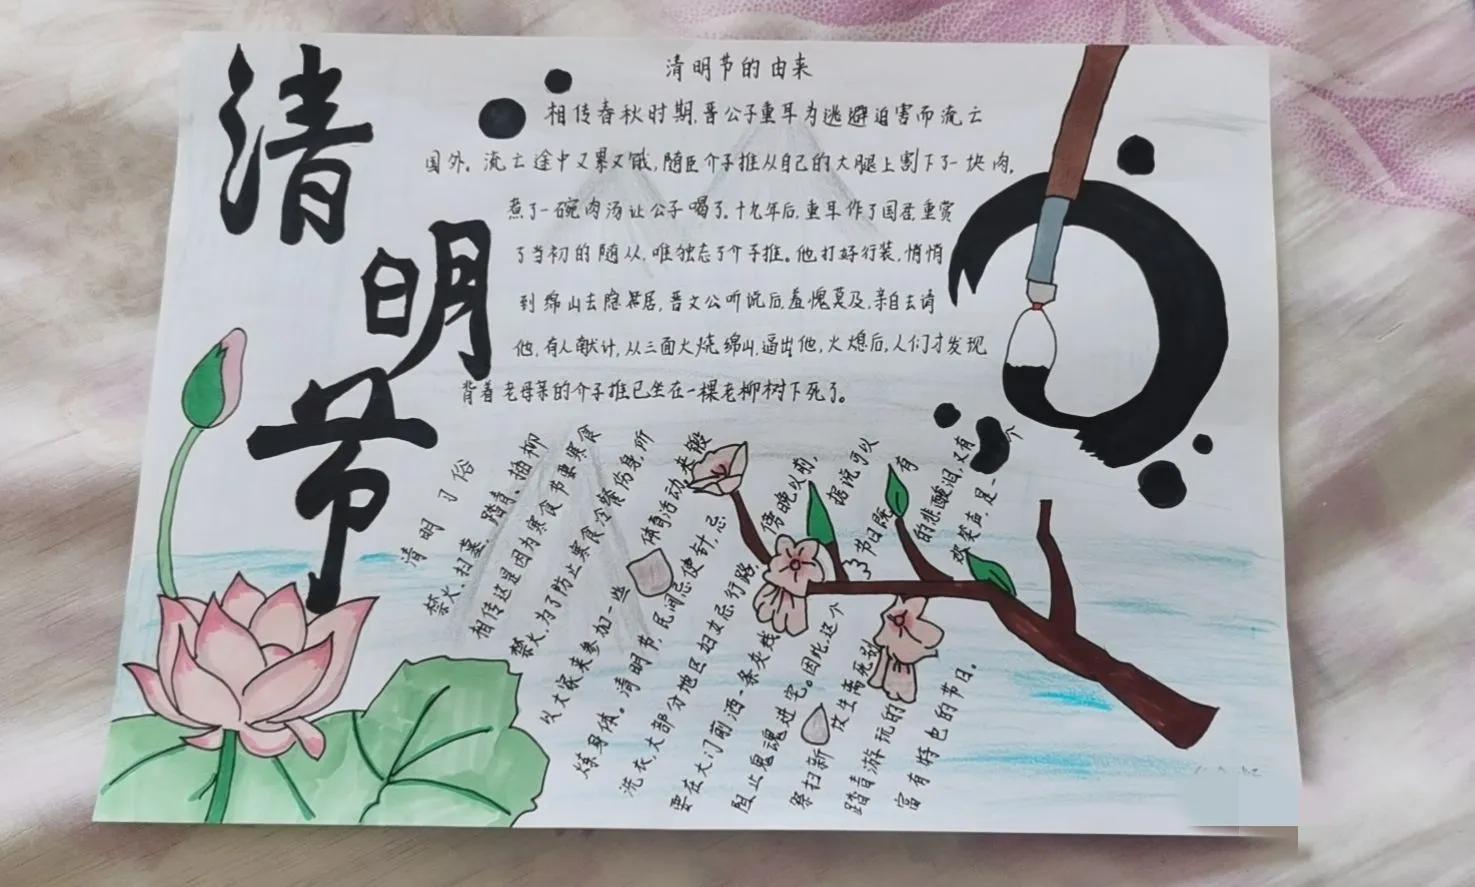 清
明
节
清明节的由来
相传春秋时期,晋公子重耳为逃避迫害而流亡
国外。流亡途中又累又饿,随臣介子推从自己的大腿上割下了一块肉,
煮了一碗肉汤让公子喝了。十九年后,重耳作了国君,重赏
了当初的随从,唯独忘了介子推。他打好行装,悄悄
到绵山去隐居,晋文公听说后,羞愧莫及,亲自去请
他,有人献计,从三面火烧绵山,逼出他,火熄后,人们才发现
背着老母亲的介子推已坐在一棵老柳树下死了。
清明习俗
禁火扫墓、踏青、插柳
相传这是因为寒食节要寒食
禁火,为了防止寒食冷餐伤身,所
以大家来参加一些体育活动来锻
炼身体。清明节,民间忌使针,忌
洗衣,大部分地区妇女忌行路傍晚以前,
要在大门前洒一条灰线据说可以
阻止鬼魂进宅。因此这个节日既有
祭扫新坟生离死别的悲酸泪,又有
踏青游玩的欢笑声是一个
富有特色的节日。